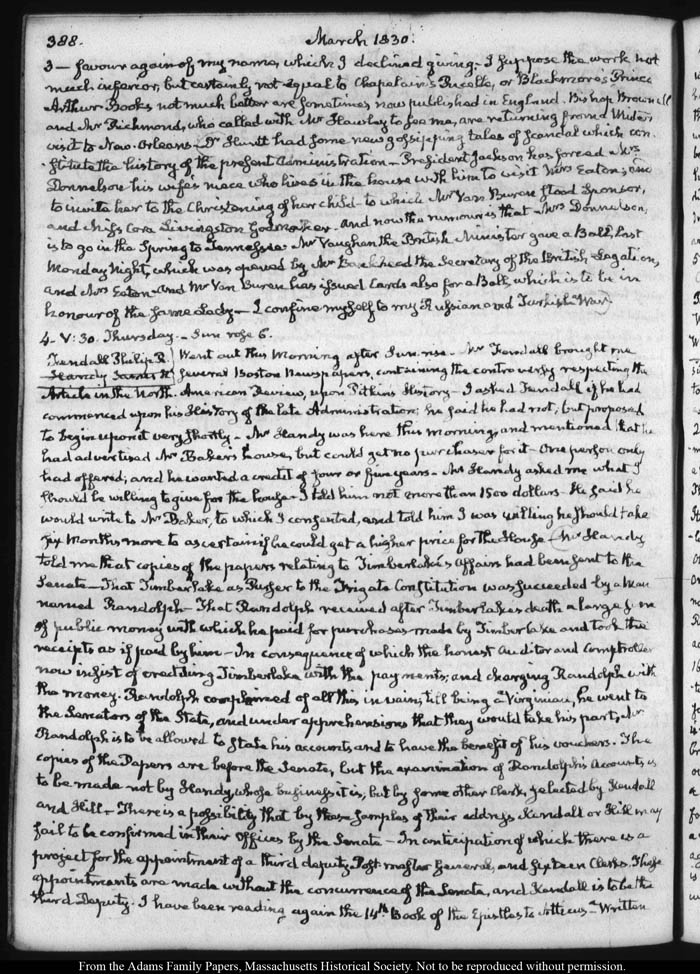 388.
March 1830.
3 — favour again of my name, which I declined giving — I suppose the work not
much inferior, but certainly not equal to Chapelain's Pucelle, or Blackmore's Prince
Arthur. Books not much better are sometimes now published in England. Bishop Brownell
and Mr Richmond, who called with Mr Hawley to see me, are returning from a Winter's
visit to New-Orleans — Dr Huntt had some new gossipping tales of scandal which con-
stitute the history of the present Administration — President Jackson has forced Mrs
Donnelson his wife's niece who lives in the house with him to visit Mrs Eaton; and
to invite her to the Christening of her child — to which Mr Van Buren stood Sponsor,
and Miss Cora Livingston Godmother. And now the rumour is that Mrs Donnelson,
is to go in the Spring to Tennessee. Mr Vaughan the British Minister gave a Ball, last
Monday Night, which was opened by Mr Bankhead the Secretary of the British Legation,
and Mrs Eaton — And Mr Van Buren has issued Cards also for a Ball, which is to be in
honour of the same Lady — I confine myself to my Russian and Turkish War.
4 — V:30. Thursday. — Sun rose 6.
Fendall Philip R.
Handy James H.
Went out this Morning after Sun-rise — Mr Fendall brought me
several Boston Newspapers, containing the controversy respecting the
Article in the North-American Review, upon Pitkins History — I asked Fendall if he had
commenced upon his History of the late Administration; he said he had not, but proposed
to begin upon it very shortly — Mr Handy was here this morning, and mentioned that he
had advertised Mr Baker's house, but could get no purchaser for it — One person only
had offered; and he wanted a credit of four or five years — Mr Handy asked me what I
should be willing to give for the house — I told him not more than 1500 dollars — He said he
would write to Mr Baker, to which I consented, and told him I was willing he should take
six Months more to ascertain if he could get a higher price for the House — Mr Handy
told me that copies of the papers relating to Timberlake's affairs had been sent to the
Senate — That Timberlake as Purser to the Frigate Constitution was succeeded by a Man
named Randolph — That Randolph received after Timberlake's death a large sum
of public money with which he paid for purchases made by Timberlake and took the
receipts as if paid by him — In consequence of which the honest Auditor and Comptroller
now insist of crediting Timberlake with the payments, and charging Randolph with
the money. Randolph complained of all this in vain, till being a Virginian, he went to
the Senators of the State, and under apprehensions that they would take his part, Mr
Randolph is to be allowed to state his accounts, and to have the benefit of his vouchers. The
copies of the Papers are before the Senate, but the examination of Randolph's Accounts, is
to be made not by Handy, whose business it is, but by some other Clerk, selected by Kendall
and Hill — There is a possibility that by these samples of their address Kendall or Hill may
fail to be confirmed in their Offices by the Senate — In anticipation of which there is a
project for the appointment of a third deputy Post-master General, and sixteen Clerks. These
appointments are made without the concurrence of the Senate, and Kendall is to be the
third Deputy. I have been reading again the 14th Book of the Epistles to Atticus — Written
From the Adams Family Papers, Massachusetts Historical Society. Not to be reproduced without permission.